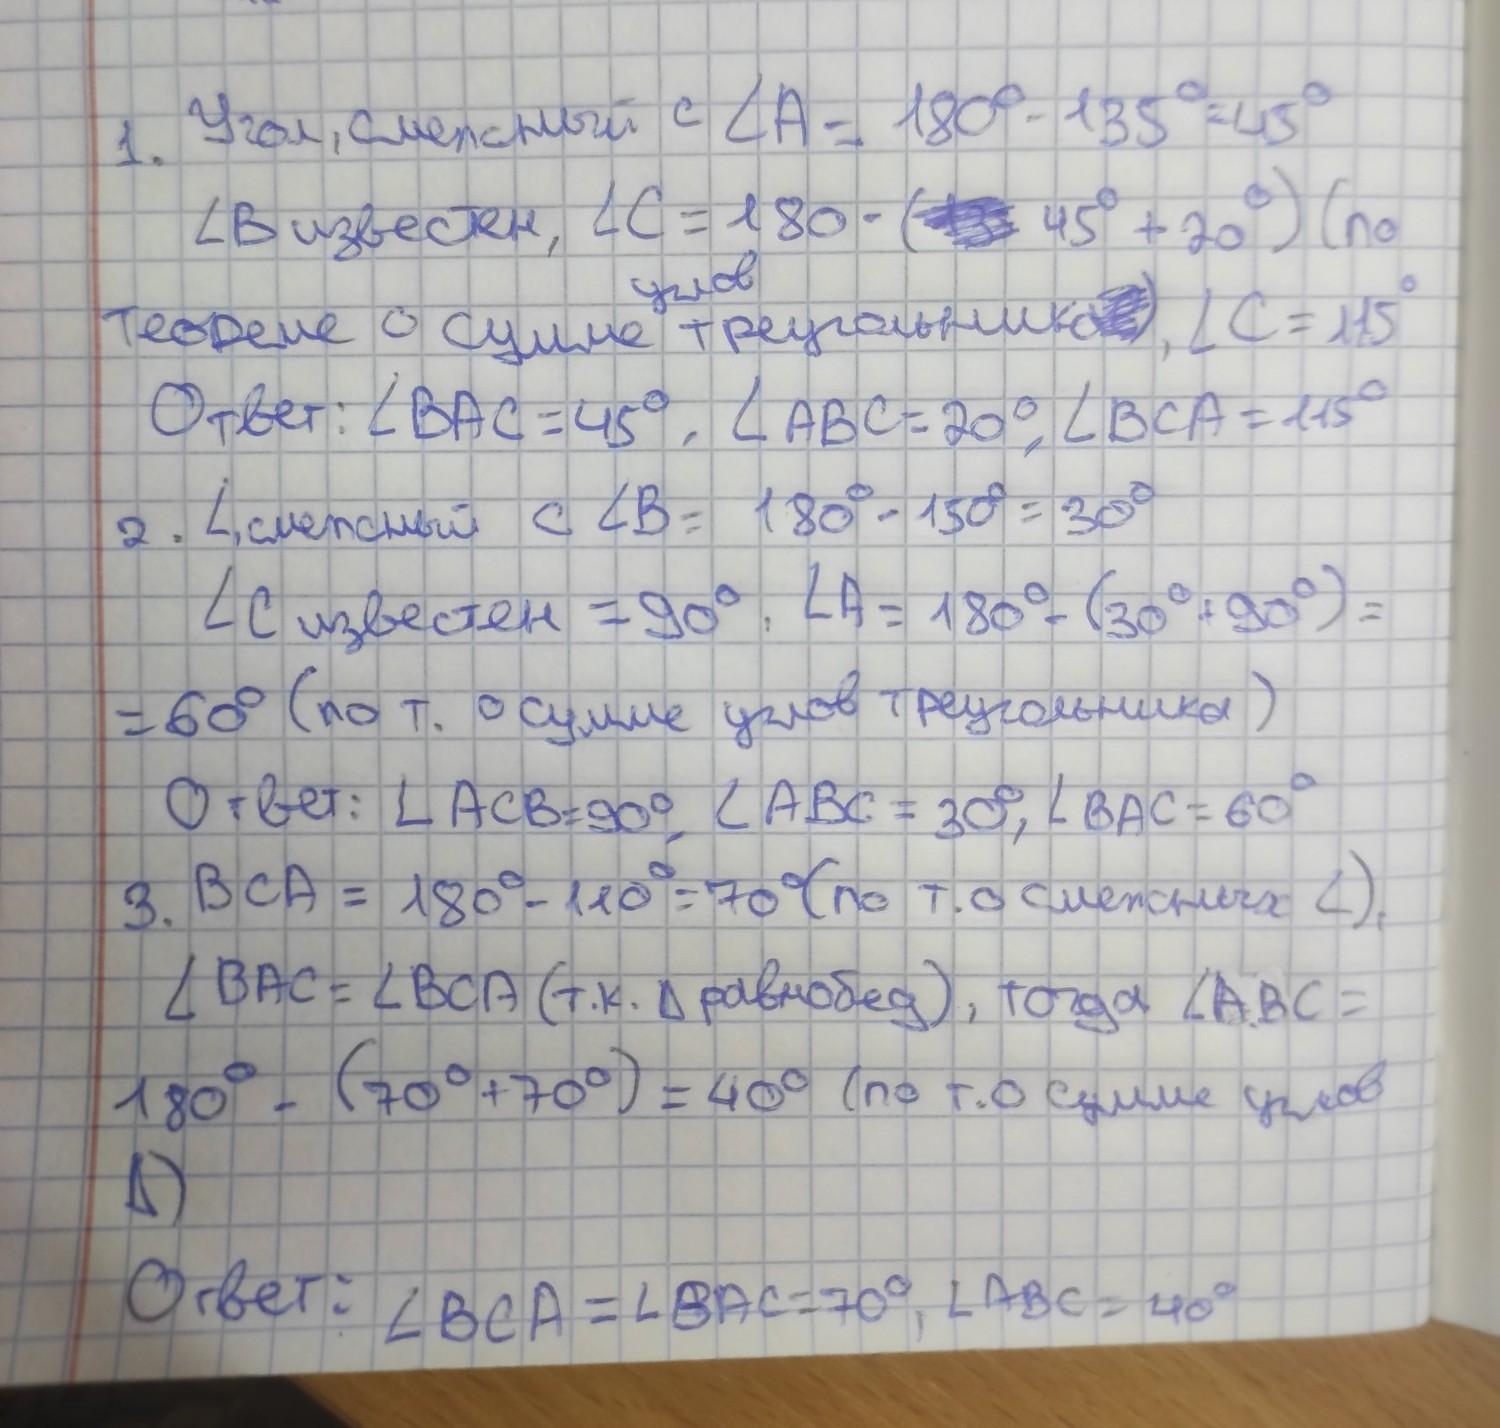 1. Угол, смежный с ∠A = 180° - 135° = 45°
∠B известен, ∠C = 180 - ( 45° + 20°) (по
углов
теореме о сумме треугольника), ∠C = 115°
Ответ: ∠BAC = 45°, ∠ABC = 20°, ∠BCA = 115°
2. ∠, смежный с ∠B = 180° - 150° = 30°
∠C известен = 90°. ∠A = 180° - (30° + 90°) =
= 60° (по т. о сумме углов треугольника)
Ответ: ∠ACB = 90°, ∠ABC = 30°, ∠BAC = 60°
3. BCA = 180° - 110° = 70° (по т. о смежных ∠),
∠BAC = ∠BCA (т.к. Δ равнобед), тогда ∠ABC =
180° - (70° + 70°) = 40° (по т. о сумме углов
Δ)
Ответ: ∠BCA = ∠BAC = 70°, ∠ABC = 40°